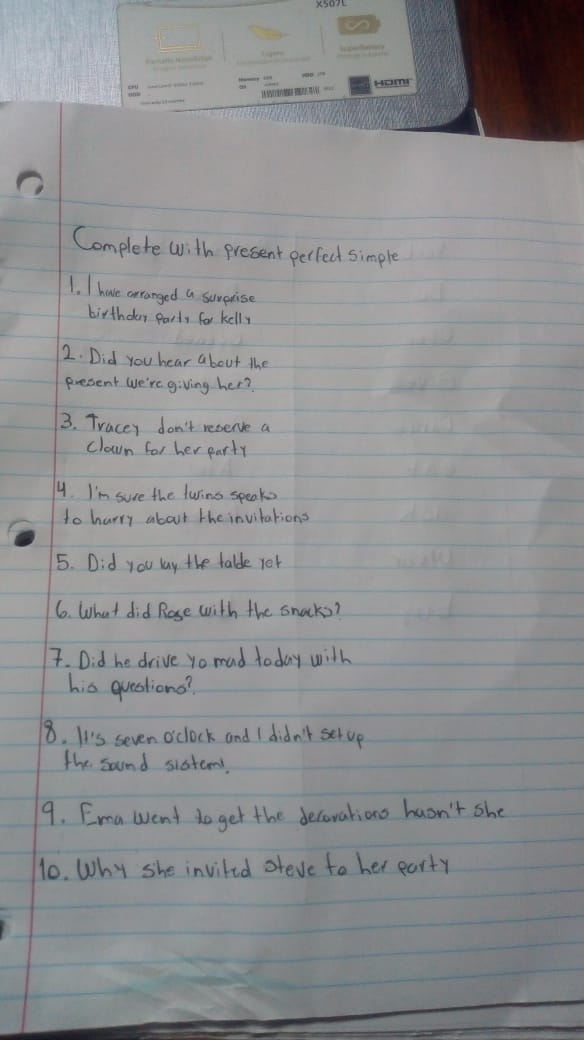 X507L
SuperBattery
HDMI
Complete with present perfect simple
1. I have arranged a surprise
birthday party for kelly
2. Did you hear about the
present we're giving her?
3. Tracey don't reserve a
clown for her party
4. I'm sure the twins speaks
to harry about the invitations
5. Did you lay the table yet
6. What did Rose with the snacks?
7. Did he drive yo mad today with
his questions?
8. It's seven o'clock and I didn't set up
the sound sistem.
9. Ema went to get the decorations hasn't she
10. Why she invited steve to her party